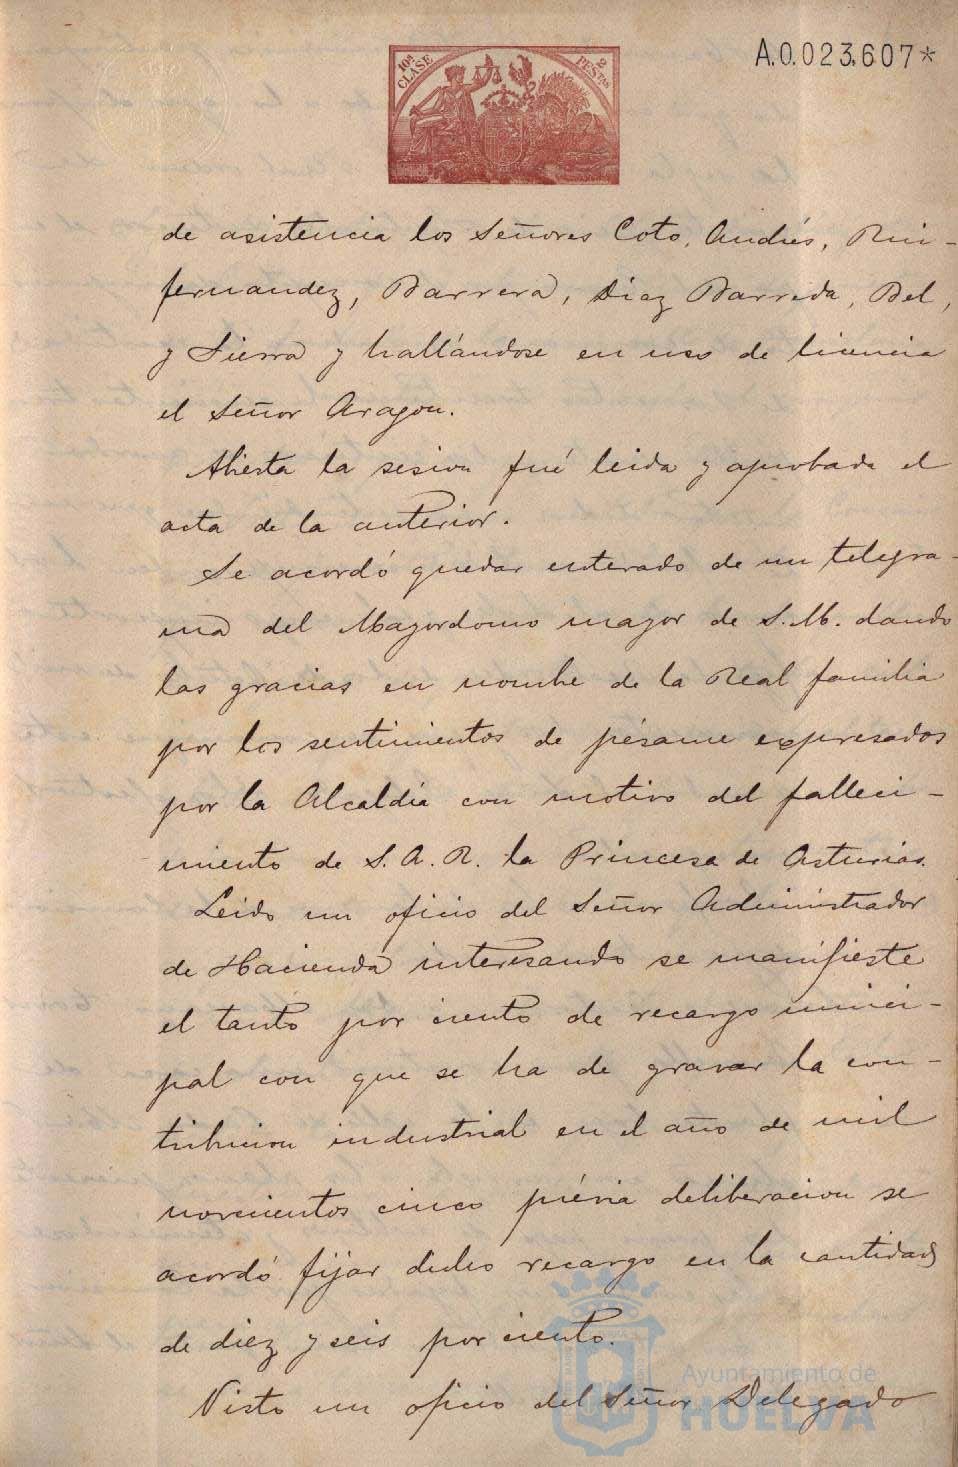 10ª CLASE 2 PESTAS
A.0.023.607*
de asistencia los Señores Coto, Andrés, Rui-
fernandez, Barrera, Diaz Barreda, Bel,
y Sierra y hallándose en uso de licencia
el Señor Aragon.
Abierta la sesion fué leida y aprobada el
acta de la anterior.
Se acordó quedar enterado de un telegra-
ma del Mayordomo mayor de S. M. dando
las gracias en nombre de la Real familia
por los sentimientos de pésame expresados
por la Alcaldía con motivo del falleci-
miento de S. A. R. la Princesa de Asturias.
Leido un oficio del Señor Administrador
de Hacienda interesando se manifieste
el tanto por ciento de recargo munici-
pal con que se ha de gravar la con-
tribucion industrial en el año de mil
novecientos cinco prévia deliberacion se
acordó fijar dicho recargo en la cantidad
de diez y seis por ciento.
Visto un oficio del Señor Delegado
Ayuntamiento de
HUELVA